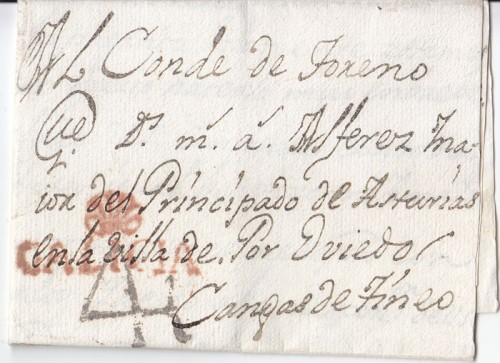 Al Conde de Toreno
Que D.s m.s a.s Alferez Ma-
ior del Principado de Asturias
en la villa de. Por Oviedo
Cangas de Tineo
4